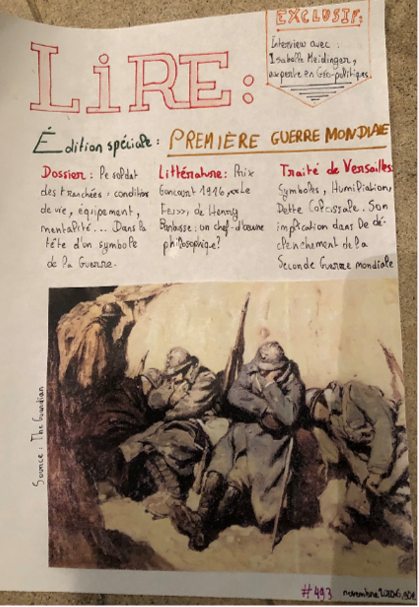 EXCLUSIF:
Interview avec :
Isabelle Meidinger,
experte en Géo-politiques.
LiRE:
Édition spéciale : PREMIÈRE GUERRE MONDIALE
Dossier : le soldat
des tranchées : condition
de vie, équipement,
mentalité... Dans la
tête d'un symbole
de la Guerre.
Littérature : Prix
Goncourt 1916, «Le
Feu», de Henry
Barbusse : un chef-d'œuvre
philosophique?
Traité de Versailles
Symboles, Humiliation,
Dette Colossale. Son
implication dans le dé-
clenchement de la
Seconde Guerre mondiale
Source : The Guardian
#493 novembre